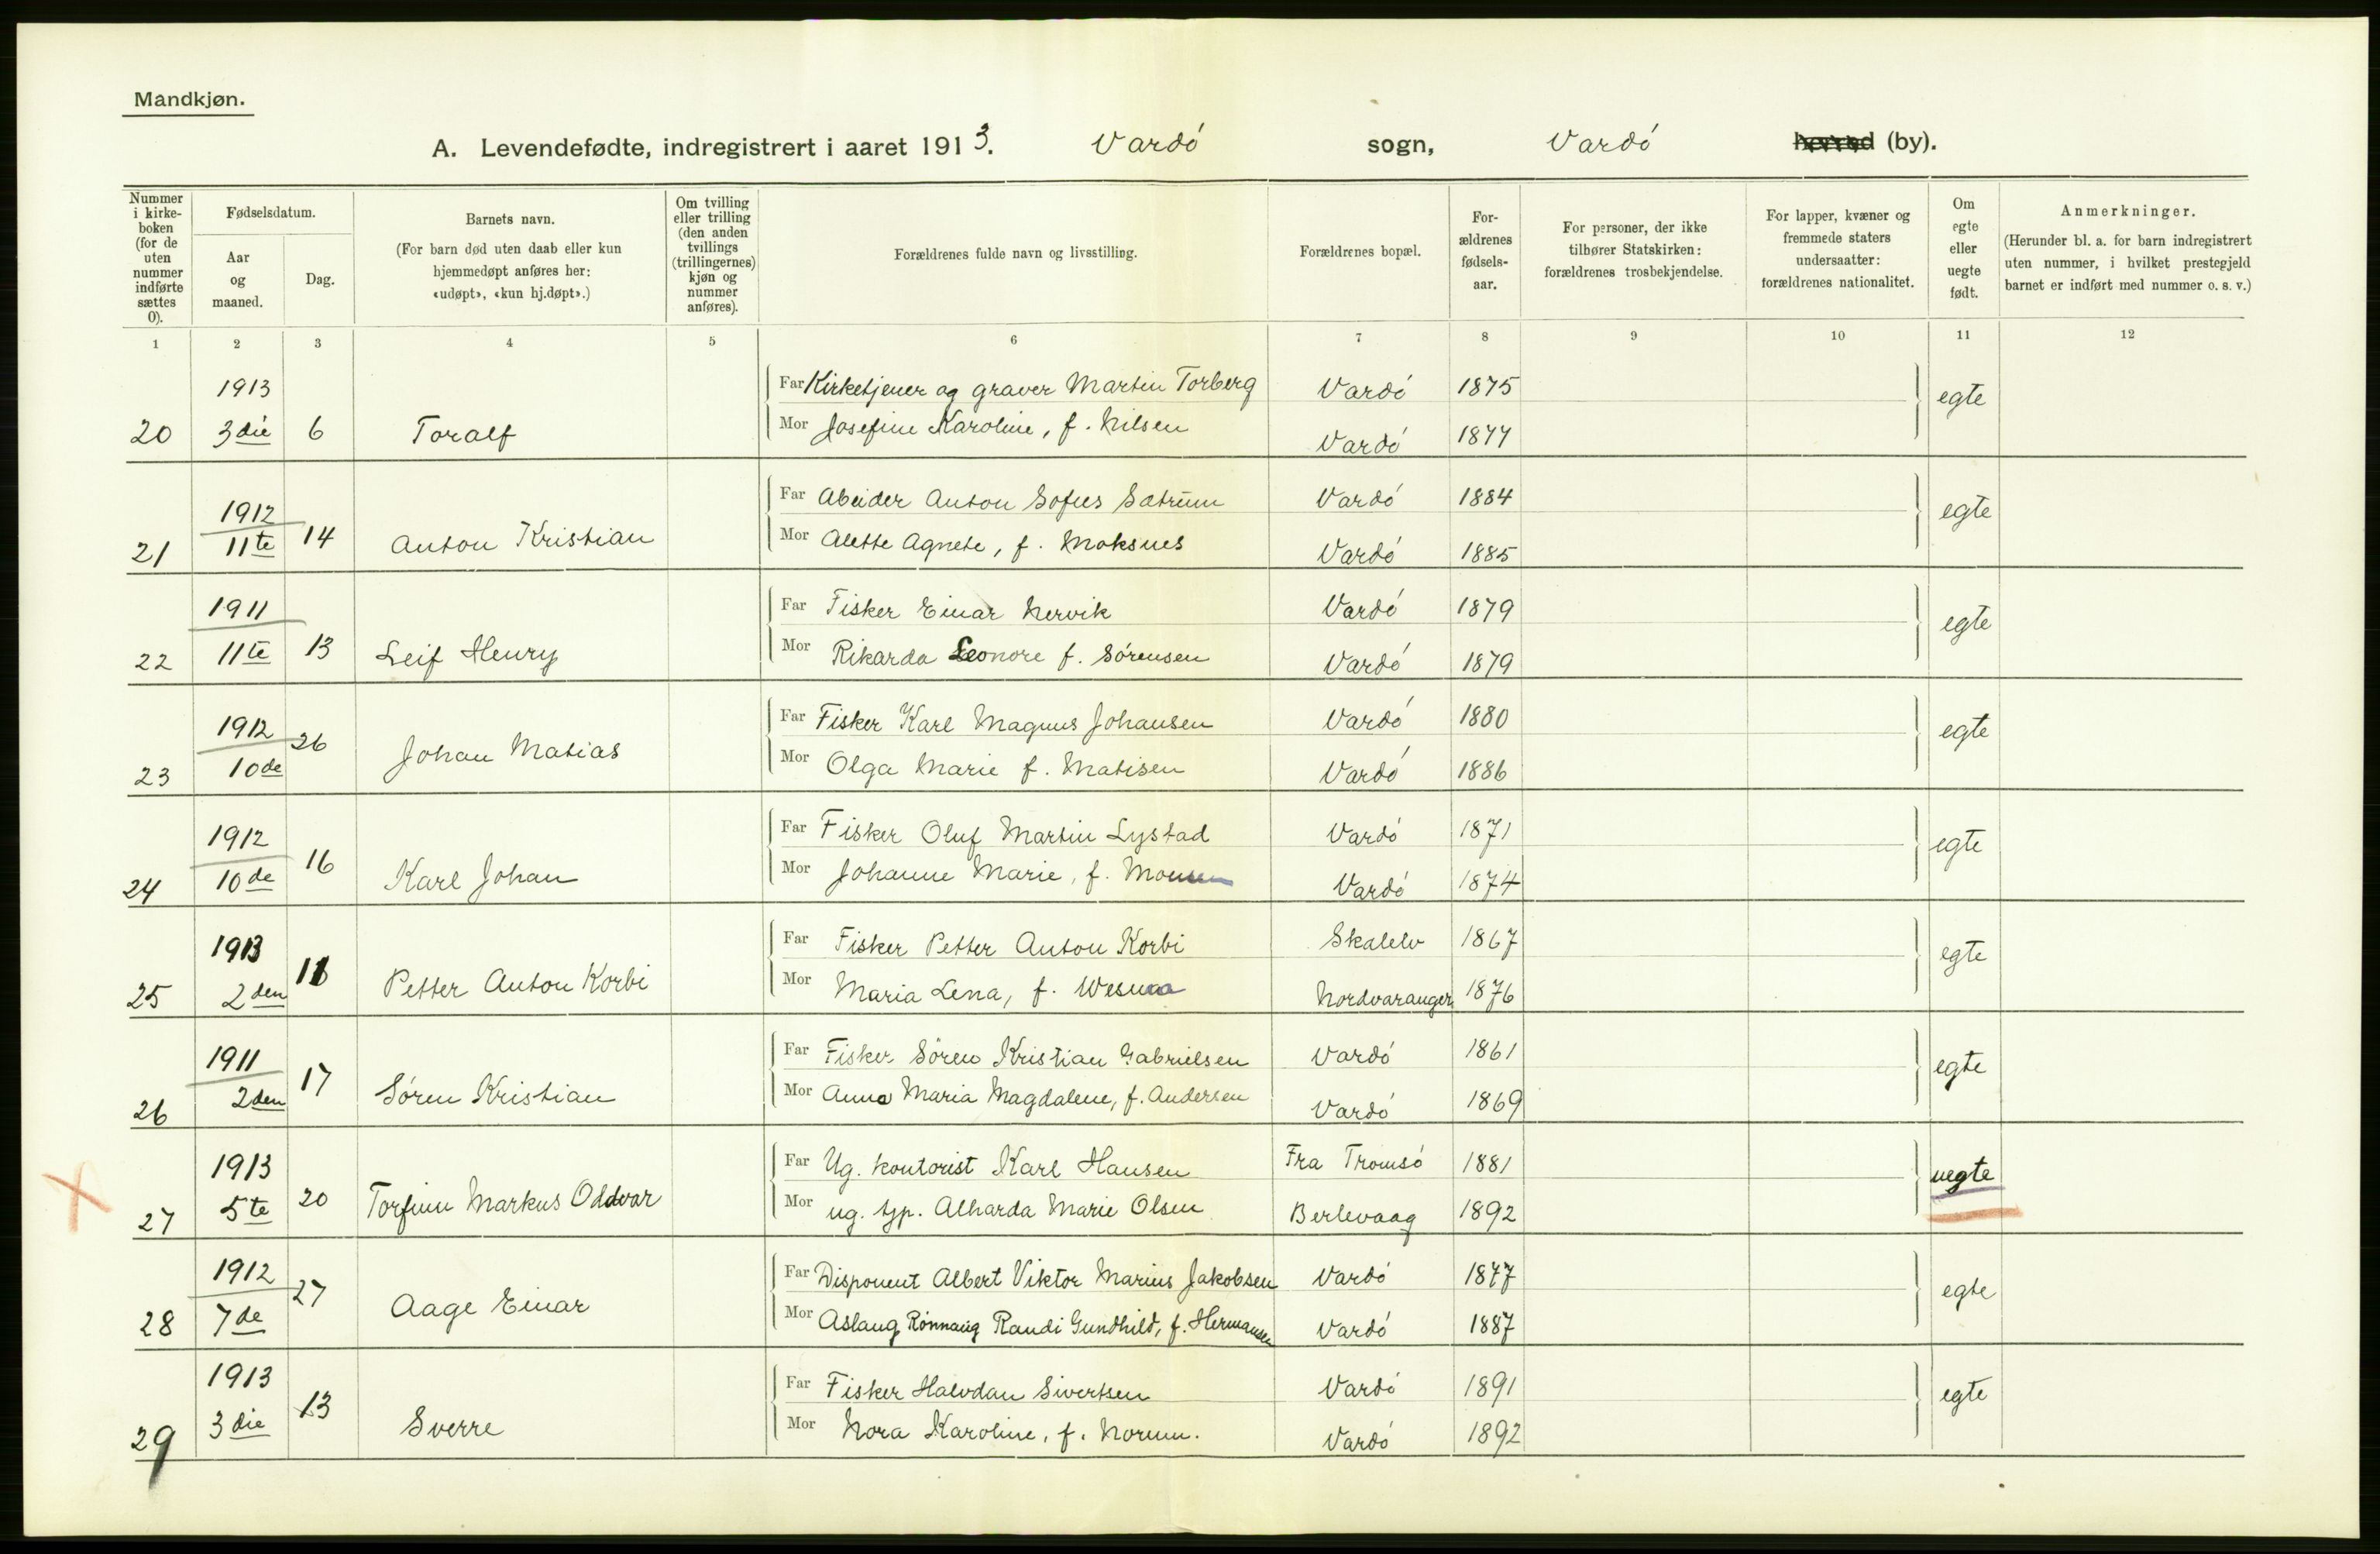 Mandkjøn.
A. Levendefødte, indregistrert i aaret 1913. Vardó sogn, Vardó herred (by).
Nummer i kirke-boken (for de uten nummer indførte sættes 0).
Fødselsdatum.
Aar og maaned.
Dag.
Barnets navn.
(For barn død uten daab eller kun hjemmedøpt anføres her: «udøpt», «kun hj.døpt».)
Om tvilling eller trilling (den anden tvillings (trillingernes) kjøn og nummer anføres).
Forældrenes fulde navn og livsstilling.
Forældrenes bopæl.
For-ældrenes fødsels-aar.
For personer, der ikke tilhører Statskirken: forældrenes trosbekjendelse.
For lapper, kvæner og fremmede staters undersaatter: forældrenes nationalitet.
Om egte eller uegte født.
Anmerkninger.
(Herunder bl. a. for barn indregistrert uten nummer, i hvilket prestegjeld barnet er indført med nummer o. s. v.)
1 2 3 4 5 6 7 8 9 10 11 12
1913 Far Kirketjener og graver Martin Torberg Vardó 1875 egte
20 3die 6 Toralf Mor Josefine Karoline, f. Nilsen Vardó 1877
1912 Far Abeider Anton Sofus Sætrum Vardó 1884 egte
21 11te 14 Anton Kristian Mor Alette Agnete, f. Moksnes Vardó 1885
1911 Far Fisker Einar Nervik Vardó 1879 egte
22 11te 13 Leif Henry Mor Rikarda Leonore f. Sórensen Vardó 1879
1912 Far Fisker Karl Magnus Johansen Vardó 1880 egte
23 10de 26 Johan Matias Mor Olga Marie f. Matisen Vardó 1886
1912 Far Fisker Oluf Martin Lystad Vardó 1871 egte
24 10de 16 Karl Johan Mor Johanne Marie, f. Monsen Vardó 1874
1913 Far Fisker Petter Anton Korbi Skalelv 1867 egte
25 2den 11 Petter Anton Korbi Mor Maria Lena, f. Wesmaa Nordvaranger 1876
1911 Far Fisker Sören Kristian Gabrielsen Vardó 1861 egte
26 2den 17 Sóren Kristian Mor Anna Maria Magdalene, f. Andersen Vardó 1869
1913 Far Ug. kontorist Karl Hansen Fra Tromsó 1881 uegte
27 5te 20 Torfinn Markus Oddvar Mor ug. tjp. Alharda Marie Olsen Berlevaag 1892
1912 Far Disponent Albert Viktor Marius Jakobsen Vardó 1877 egte
28 7de 27 Aage Einar Mor Aslaug Rónnaug Randi Gundhild, f. Hermansen Vardó 1887
1913 Far Fisker Halvdan Sivertsen Vardó 1891 egte
29 3die 13 Sverre Mor Nora Karoline, f. Norum. Vardó 1892